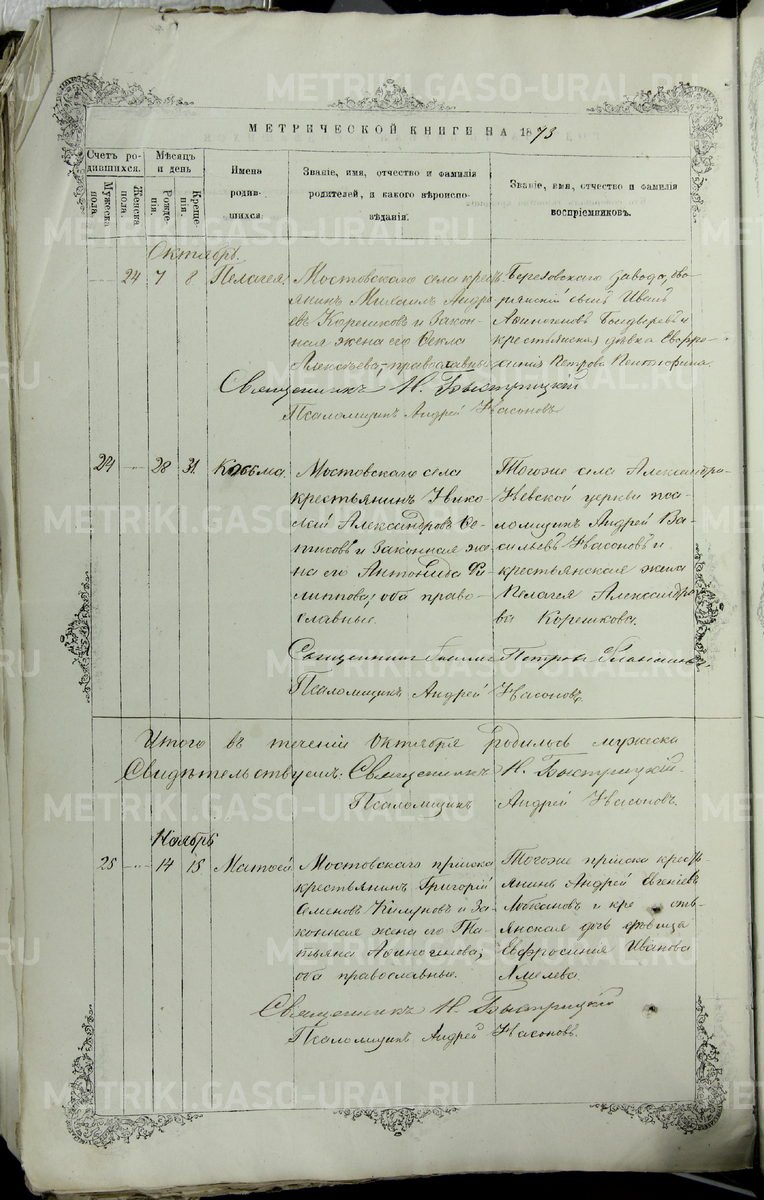 МЕТРИЧЕСКОЙ КНИГИ НА 1873
Счетъ ро-
дившихся.
Мѣсяцъ
и день
Мужеска
пола.
Женска
пола.
Рожде-
нія.
Креще-
нія
Имена
родив-
шихся
Званіе, имя, отчество и фамилія
родителей, и какого вѣроиспо-
вѣданія.
Званіе, имя, отчество и фамилія
воспріемниковъ.
Октябрь.
24 7 8 Пелагея.
Мостовскаго села крес
янинъ Михаилъ Андре
евъ Корешковъ и закон-
ная жена его Фекла
Алексѣева, православные
Березовскаго завода, дво-
рянскій сынъ Иванъ
Аѳиногеновъ и
крестьянская дѣвка Евфро-
синія Петрова
Священникъ Н. Быстрицкій
Псаломщикъ Андрей Насоновъ
29 28 31. Косьма.
Мостовскаго села
крестьянинъ Нико-
лай Александровъ
и законная же-
на его Антонида Фи-
липпова, оба право-
славные.
Тогоже села Александро-
Невской церкви пса-
ломщикъ Андрей Ва-
сильевъ Насоновъ и
крестьянская жена
Пелагея Александро-
ва Корешкова.
Священникъ Петровъ
Псаломщикъ Андрей Насоновъ
Итого въ теченіи Октября родилось мужеска
Свидѣтельствуемъ: Священникъ Н. Быстрицкій
Псаломщикъ Андрей Насоновъ.
Ноябрь
25 14 18 Матѳей
Мостовскаго пріиска
крестьянинъ Григорій
Семеновъ и за-
конная жена его Та-
тьяна Аѳиногенова,
оба православные.
Тогоже пріиска кресть-
янинъ Андрей Евгеніевъ
Лобановъ и кре сть-
янская дочь дѣвица
Евфросинія Иванова
Священникъ Н. Быстрицкій
Псаломщикъ Андрей Насоновъ.
METRIKI.GASO-URAL.RU